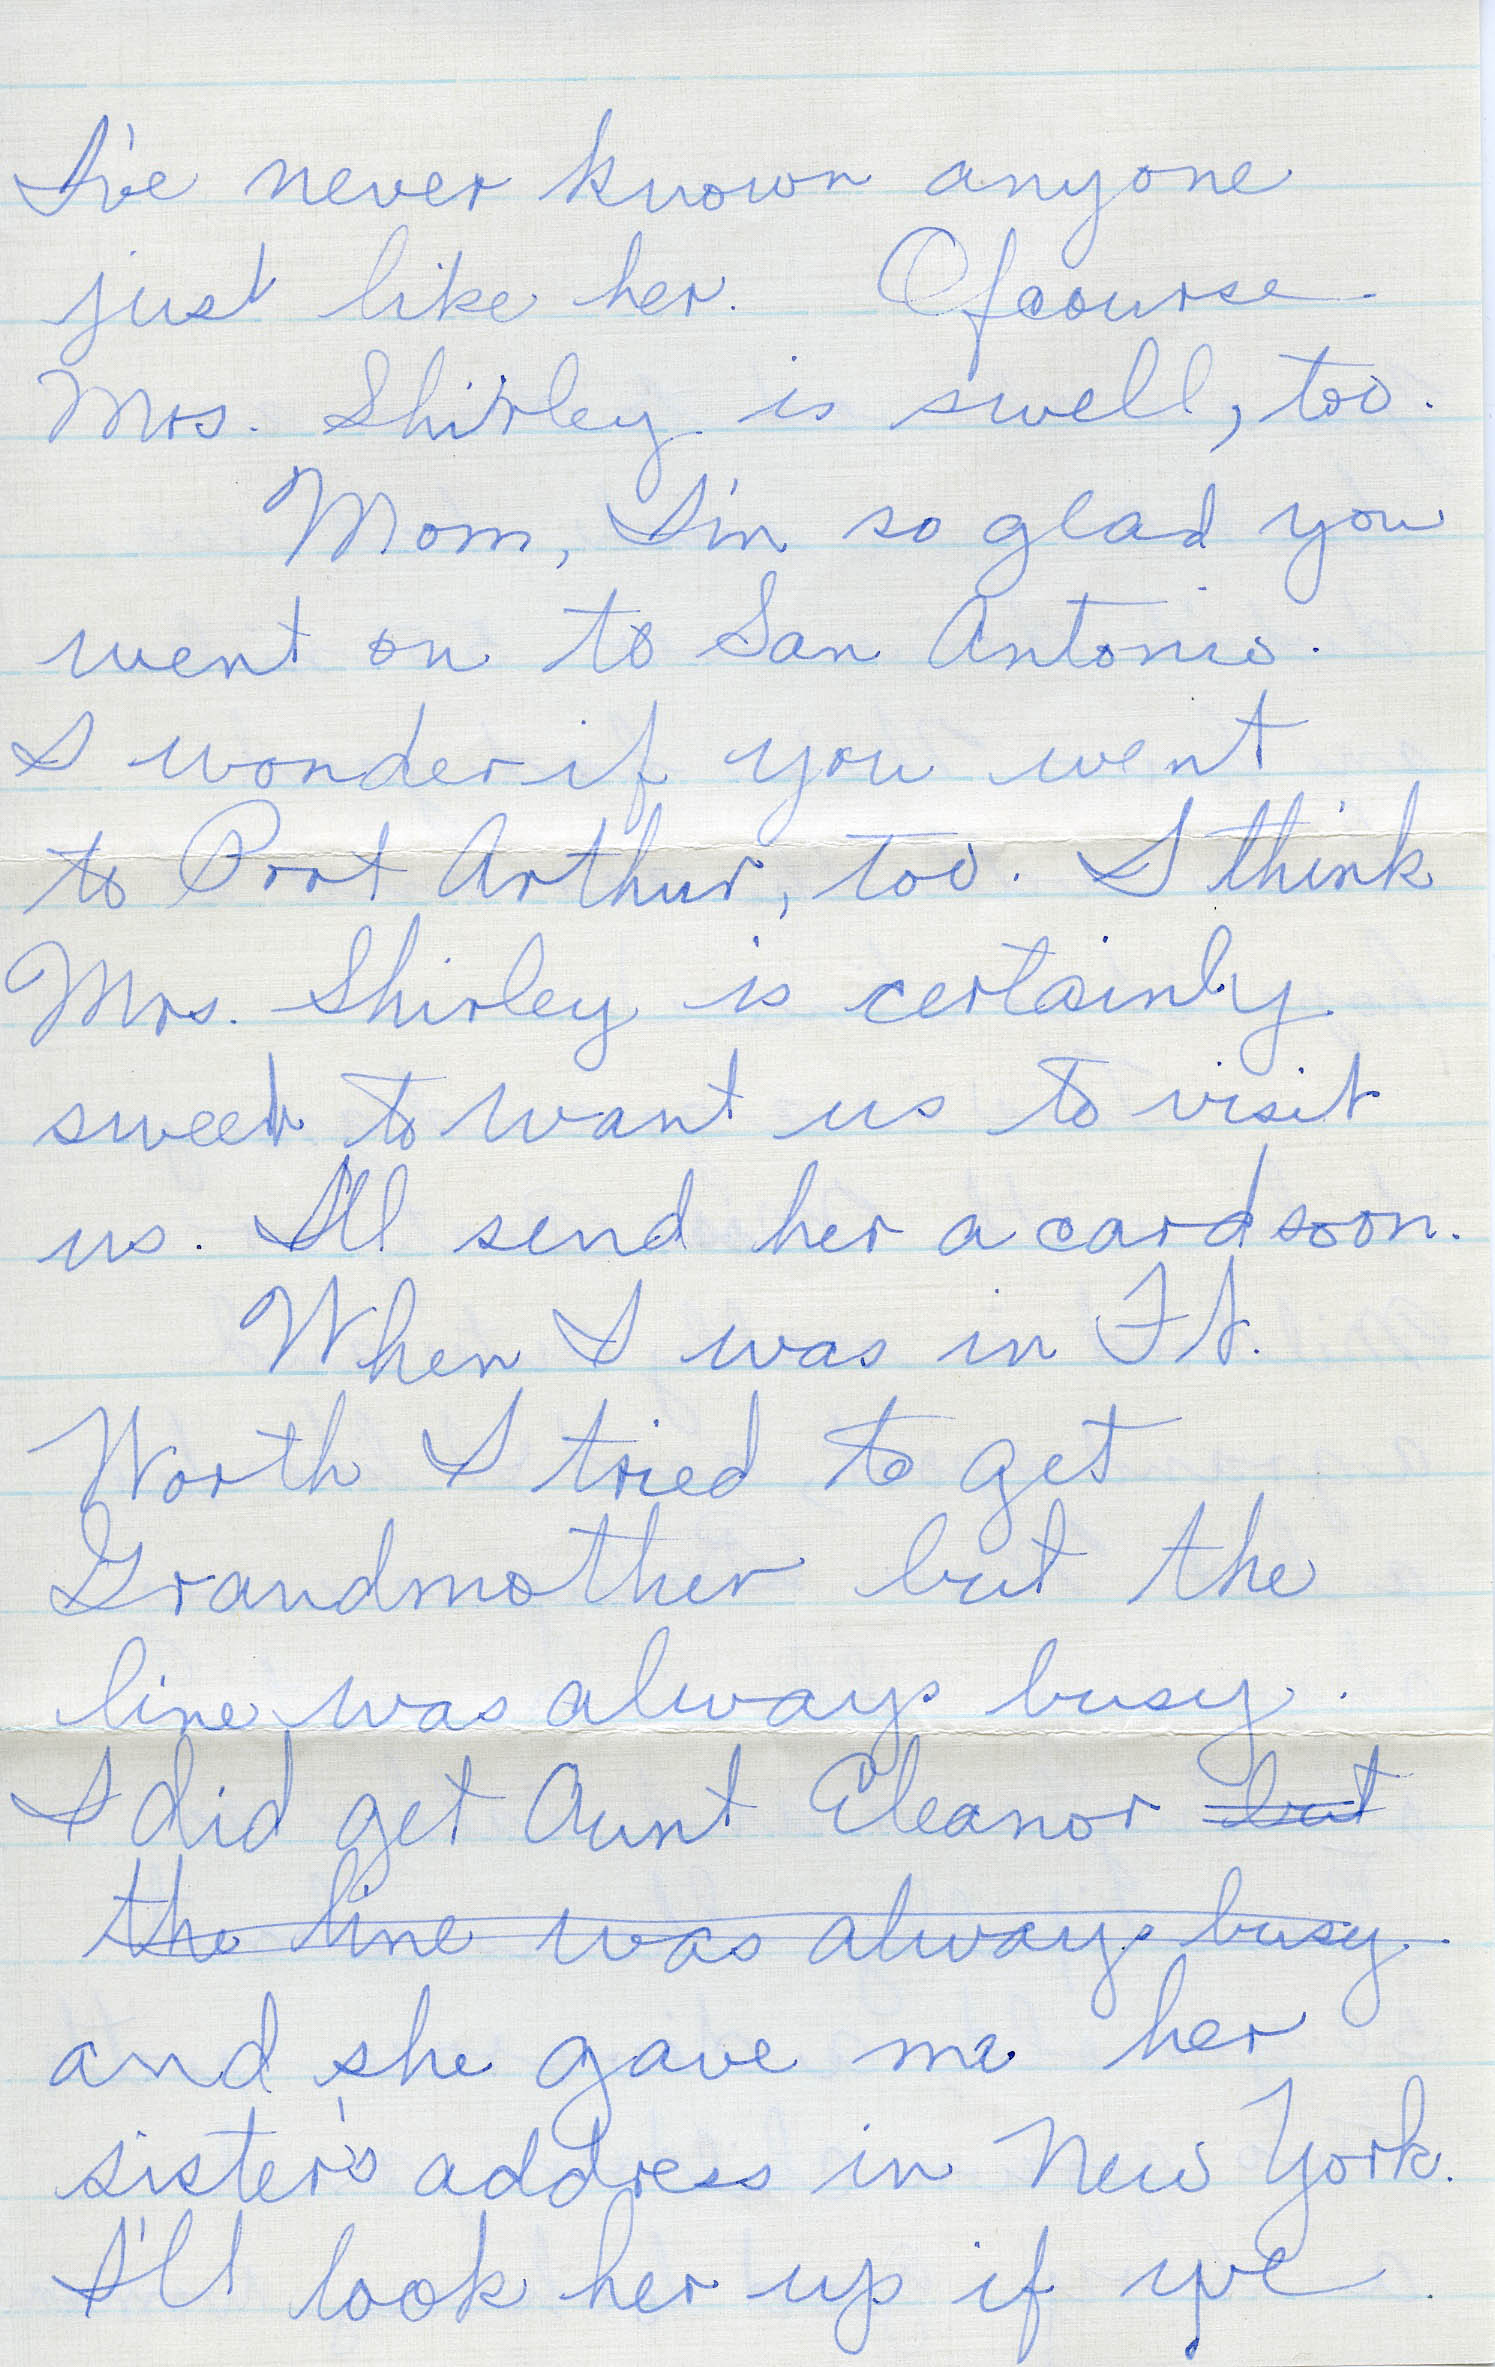 I've never known anyone
just like her. Ofcourse
Mrs. Shirley is swell, too.
Mom, I'm so glad you
went on to San Antonio.
I wonder if you went
to Port Arthur, too. I think
Mrs. Shirley is certainly
sweet to want us to visit
us. I'll send her a card soon.
When I was in Ft.
Worth I tried to get
Grandmother but the
line was always busy.
I did get Aunt Eleanor but
the line was always busy
and she gave me her
sister's address in New York.
I'll look her up if we